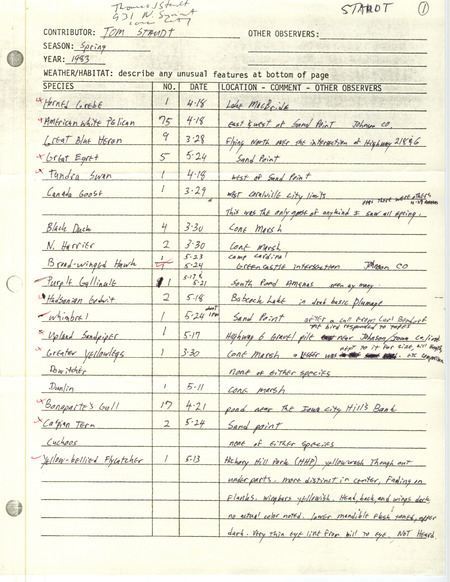 Thomas J Staudt
931 N. Summit
Iowa City
STAUDT 1
CONTRIBUTOR: TOM STAUDT OTHER OBSERVERS:
SEASON: Spring
YEAR: 1983
WEATHER/HABITAT: describe any unusual features at bottom of page
SPECIES NO. DATE LOCATION - COMMENT - OTHER OBSERVERS
Horned Grebe 1 4-18 Lake MacBride
American White Pelican 75 4-18 east & west of Sand Point Johnson Co.
Great Blue Heron 9 3-28 Flying North over the intersection of Highway 218 & 6
Great Egret 5 5-24 Sand Point
Tundra Swan 1 4-18 west of Sand Point
Canada Goose 1 3-29 west Coralville City limits
This was the only goose of any kind I saw all spring.
Black Duck 4 3-30 Cone Marsh
N. Harrier 2 3-30 Cone Marsh
Broad-winged Hawk 1 5-23 Camp Cardinal
5-24 Greencastle intersection Johnson CO
Purple Gallinule 1 5-17 & 5-21 South Pond Amanas seen by many
Hudsonian Godwit 2 5-18 Babcock Lake in dark basic plumage
Whimbrel 1 5-24 Sand Point after a call from Carl Bendorf
the bird responded to tapes
Upland Sandpiper 1 5-17 Highway 6 Gravel pit near Johnson/Iowa Co. line
Greater Yellowlegs 1 3-30 Cone Marsh a lesser was next to it for size, comparison
Dowitcher none of either species
Dunlin 1 5-11 Cone marsh
Bonaparte's Gull 17 4-21 pond near the Iowa City Hills Bank
Caspian Tern 2 5-24 Sand point
Cuckoos none of either species
Yellow-bellied Flycatcher 1 5-13 Hickory Hill Park (HHP) yellow wash through out
under parts. more distinct in center, Fading on
Flanks. wingbars yellowish. Head, back, and wings dark
no actual color noted. lower mandible flesh toned, upper
dark. Very thin eye line from bill to eye. NOT Heard.